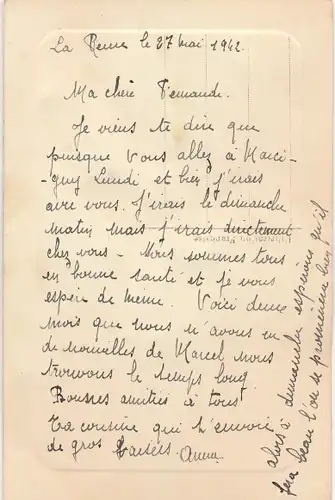 La           le 27 mai 1942.
Ma chère Fernande.
Je viens te dire que
puisque vous allez à Marci-
-gny Lundi et bien j'irais
avec vous. J'irais le dimanche
matin mais j'irais directement
chez vous - Nous sommes tous
en bonne santé et je vous
espère de meme. Voici deux
mois que nous n'avons eu
de nouvelles de Marcel nous
trouvons le temps long
Bonnes amitiés à tous
Ta cousine qui t'envoie
de gros baisers. Anna
alors à dimanche esperons qu'il
fera beau l'on se promènera bien